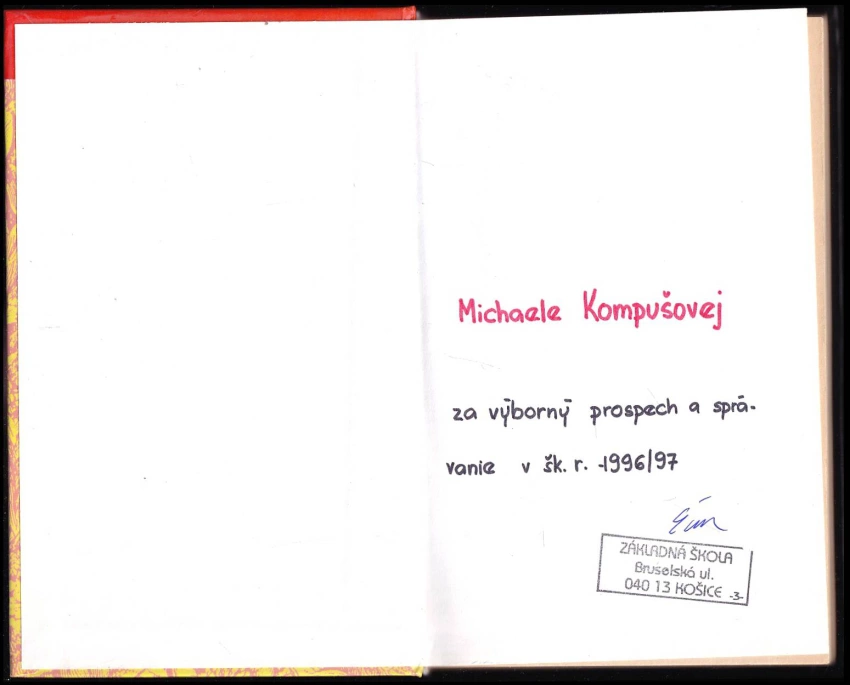 Michaele Kompušovej
za výborný prospech a sprá-
vanie v šk. r. 1996/97
ZÁKLADNÁ ŠKOLA
Bruselská ul.
040 13 KOŠICE -3-